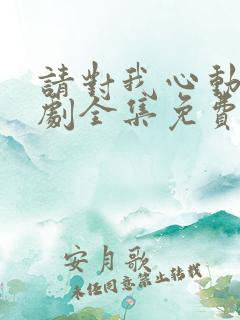 請對我心動
劇全集免費
安月歌
未经同意禁止转载